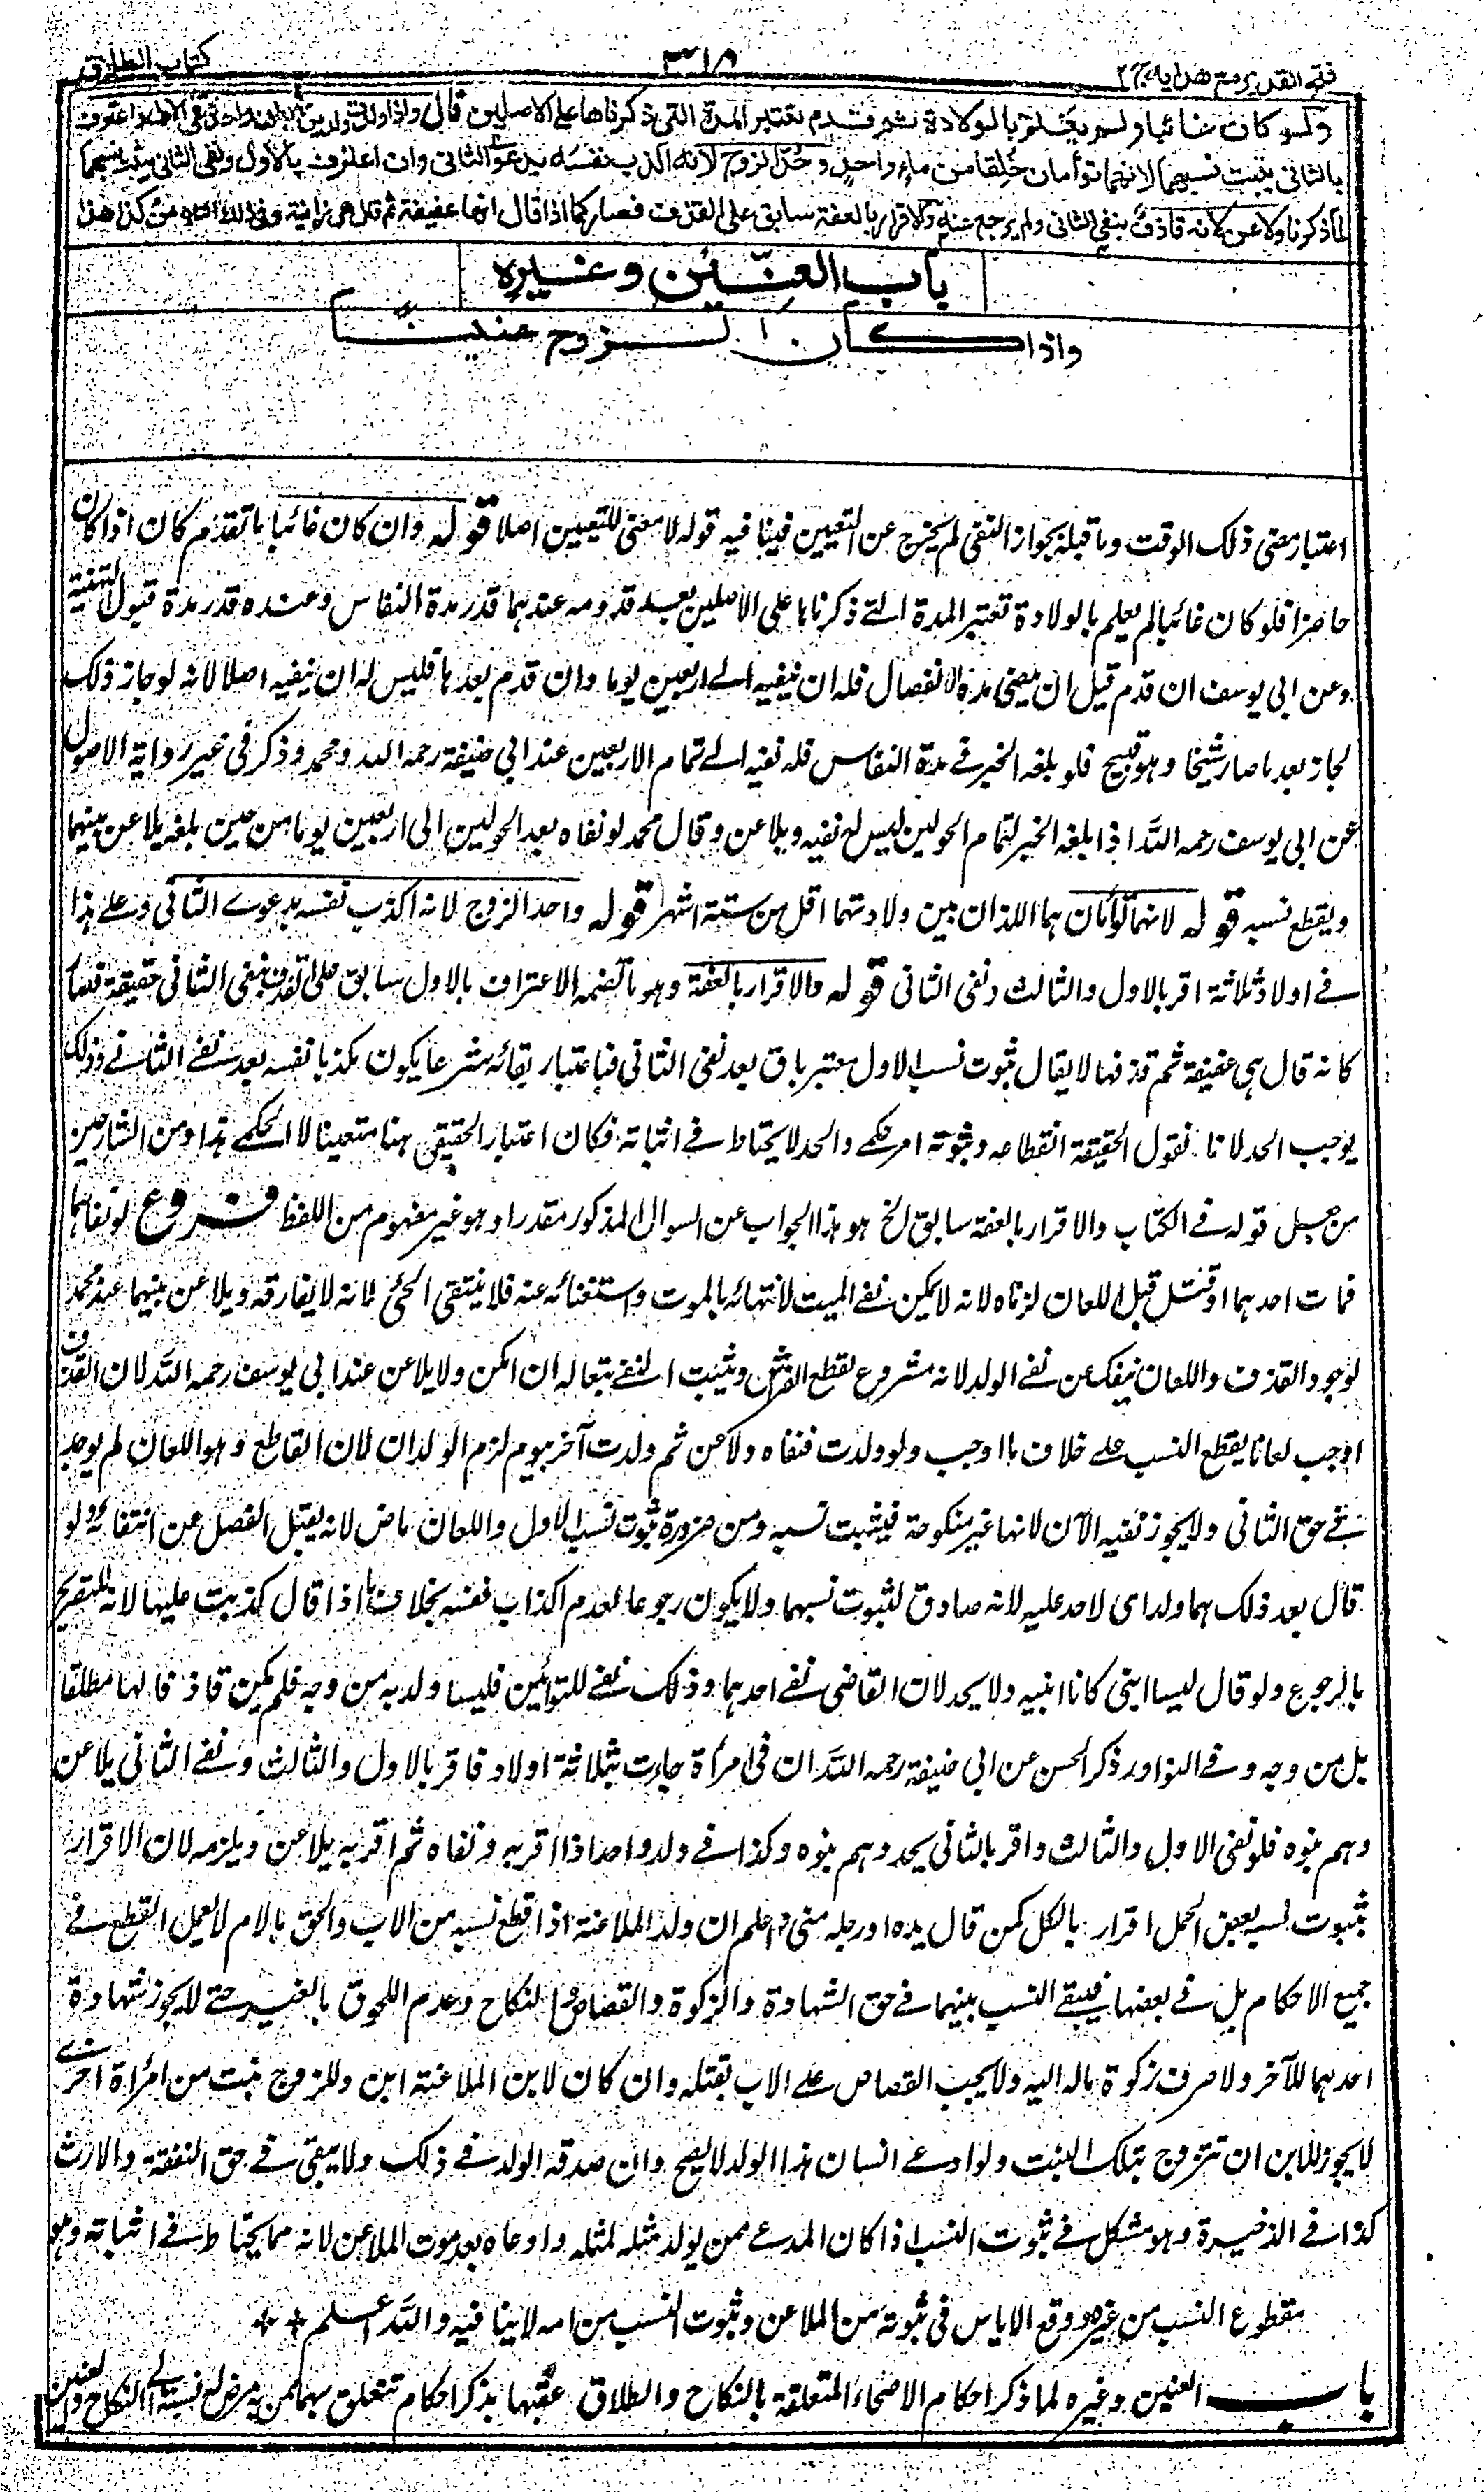 فتح القدير مع هدايه ج ٢
٣١٨
كتاب الطلاق
ولو كان غائبا ولم يعلم بالولادة ثم قدم تعتبر المدة التي ذكرناها على الاصلين قال واذا ولدت ولدين في بطن واحد فنفى الاول واعترف
بالثاني يثبت نسبهما لانهما توأمان خُلِقا من ماء واحد وحُدّ الزوج لانه اكذب نفسه بدعوى الثاني وان اعترف بالاول ونفى الثاني يثبت نسبهما
لما ذكرنا ولاعن لانه قاذف بنفي الثاني ولم يرجع عنه والاقرار بالعفة سابق على القذف فصار كما اذا قال انها عفيفة ثم قال هي زانية وفي ذلك التلاعن كذا هذا
باب العنّين وغيره
واذا كان الزوج عنينا
اعتبار مضى ذلك الوقت وما قبله بجواز النفى لم يخرج عن التعيين فينافيه قوله لا معنى للتعيين اصلا قوله وان كان غائبا ما تقدم كان اذا كان
حاضرا فلو كان غائبا لم يعلم بالولادة تعتبر المدة التي ذكرناها على الاصلين بعد قدومه عندهما قدر مدة النفاس وعنده قدر مدة قبول التهنية
وعن ابى يوسف ان قدم قبل ان يمضى مدة الانفصال فله ان ينفيه الى اربعين يوما وان قدم بعدها فليس له ان ينفيه اصلا لانه لو جاز ذلك
لجاز بعد ما صار شيخا وهو قبيح فلو بلغه الخبر في مدة النفاس فله نفيه الى تمام الاربعين عند ابى حنيفة رحمه الله ومحمد وذكر فى غير رواية الاصول
عن ابى يوسف رحمه الله اذا بلغه الخبر لتمام الحولين ليس له نفيه ويلاعن وقال محمد لو نفاه بعد الحولين الى اربعين يوما من حين بلغه يلاعن بينهما
ويقطع نسبه قوله لانهما توأمان هما اللذان بين ولادتهما اقل من ستة اشهر قوله وحد الزوج لانه اكذب نفسه بدعوى الثانى وعلى هذا
في اولاد ثلاثة اقر بالاول والثالث ونفى الثانى قوله والاقرار بالعفة وهو ما تضمنه الاعتراف بالاول سابق على القذف بنفى الثانى حقيقة فصار
كانه قال هى عفيفة ثم قذفها لا يقال ثبوت نسب الاول معتبر باق بعد نفى الثانى فباعتبار بقائه شرعا يكون مكذبا نفسه بعد نفي الثاني وذلك
يوجب الحد لانا نقول الحقيقة انقطاعه وثبوته امر حكمي والحد لا يحتاط في اثباته فكان اعتبار الحقيقي هنا متعينا لا الحكمي هذا ومن الشارحين
من جعل قوله في الكتاب والاقرار بالعفة سابق الخ هو هذا الجواب عن السوال المذكور مقدرا وهو غير مفهوم من اللفظ فروع لو نفاهما
فمات احدهما او قتل قبل اللعان لزماه لانه لا يمكن نفي الميت لانتهائه بالموت واستغنائه عنه فلا ينتفى الحى لانه لا يفارقه ويلاعن بينهما عند محمد
لوجود القذف واللعان ينفك عن نفي الولد لانه مشروع لقطع الفراش ويثبت النفي تبعا له ان امكن ولا يلاعن عند ابى يوسف رحمه الله لان القذف
اوجب لعانا يقطع النسب على خلاف ما اوجب ولو ولدت فنفاه ولاعن ثم ولدت آخر بيوم لزم الولدان لان القاطع وهو اللعان لم يوجد
في حق الثانى ولا يجوز نفيه الآن لانها غير منكوحة فيثبت نسبه ومن ضرورة ثبوت نسب الاول واللعان ماض لانه يقبل الفصل عن انتفائه ولو
قال بعد ذلك هما ولداى لا حد عليه لانه صادق لثبوت نسبهما ولا يكون رجوعا لعدم اكذاب نفسه بخلاف ما اذا قال كذبت عليها لانه للتصريح
بالرجوع ولو قال ليسا ابنى كانا ابنيه ولا يحد لان القاضى نفى احدهما وذلك نفي للتوأمين فليسا ولديه من وجه فلم يكن قاذفا لها مطلقا
بل من وجه وفي النوادر ذكر الحسن عن ابى حنيفة رحمه الله ان فى امرأة جاءت بثلاثة اولاد فاقر بالاول والثالث ونفى الثانى يلاعن
وهم بنوه فلو نفى الاول والثالث واقر بالثانى يحد وهم بنوه وكذا في ولد واحد اذا اقر به ونفاه ثم اقر به يلاعن ويلزمه لان الاقرار
بثبوت نسب بعض الحمل اقرار بالكل كمن قال يده او رجله منى واعلم ان ولد الملاعنة اذا قطع نسبه من الاب والحق بالام لا يعمل القطع في
جميع الاحكام بل في بعضها فيبقى النسب بينهما في حق الشهادة والزكوة والقصاص والنكاح وعدم اللحوق بالغير حتى لا يجوز شهادة
احدهما للآخر ولا صرف زكوة ماله اليه ولا يجب القصاص على الاب بقتله وان كان لابن الملاعنة ابن وللزوج بنت من امرأة اخرى
لا يجوز للابن ان يتزوج بتلك البنت ولو ادعى انسان هذا الولد لا يصح وان صدقه الولد في ذلك ولا يبقى في حق النفقة والارث
كذا في الذخيرة وهو مشكل في ثبوت النسب اذا كان المدعي ممن يولد مثله لمثله وادعاه بعد موت الملاعن لانه مما يحتاط في اثباته وهو
مقطوع النسب من غيره ووقع الاياس فى ثبوته من الملاعن وثبوت النسب من امه لا ينافيه والله اعلم
باب العنين وغيره لما ذكر احكام الاصحاء المتعلقة بالنكاح والطلاق عقبها بذكر احكام تتعلق بهما ممن به مرض له نسبة الى النكاح والعنين